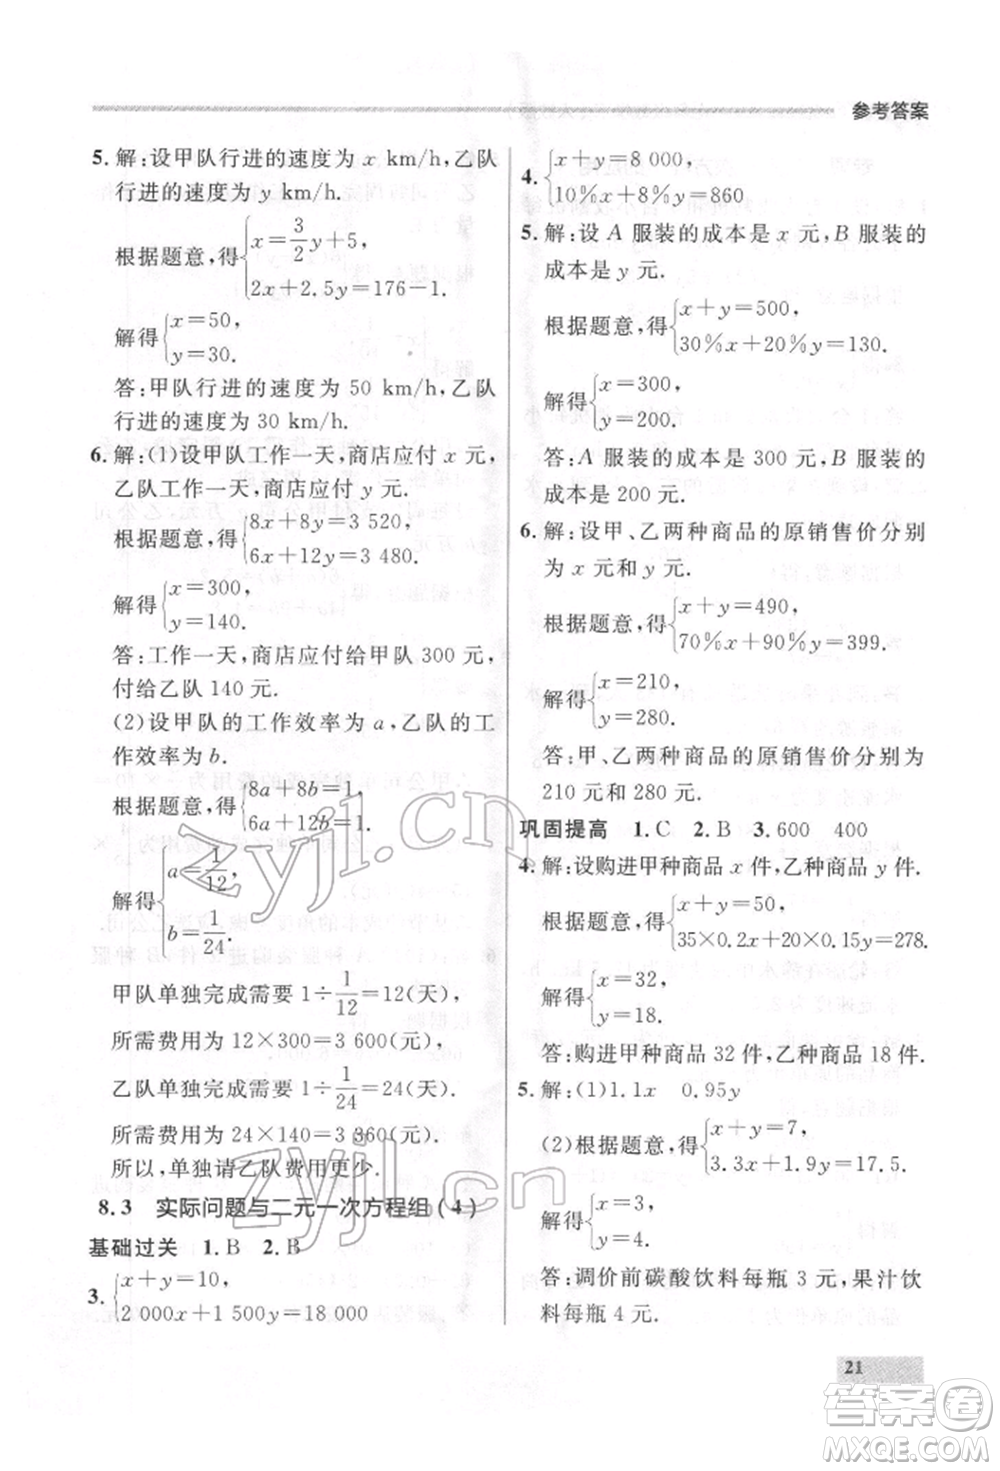 参考答案
5. 解:设甲队行进的速度为 x km/h,乙队
行进的速度为 y km/h.
根据题意,得{x=3/2y+5,
2x+2.5y=176-1.
解得{x=50,
y=30.
答:甲队行进的速度为 50 km/h,乙队
行进的速度为 30 km/h.
6. 解:(1)设甲队工作一天,商店应付 x 元,
乙队工作一天,商店应付 y 元.
根据题意,得{8x+8y=3 520,
6x+12y=3 480.
解得{x=300,
y=140.
答:工作一天,商店应付给甲队 300 元,
付给乙队 140 元.
(2)设甲队的工作效率为 a,乙队的工
作效率为 b.
根据题意,得{8a+8b=1,
6a+12b=1.
解得{a=1/12,
b=1/24.
甲队单独完成需要 1÷1/12=12(天),
所需费用为 12×300=3 600(元).
乙队单独完成需要 1÷1/24=24(天),
所需费用为 24×140=3 360(元).
所以,单独请乙队费用更少.
8.3 实际问题与二元一次方程组(4)
基础过关 1.B 2.B
3. {x+y=10,
2 000x+1 500y=18 000
4. {x+y=8 000,
10%x+8%y=860
5. 解:设 A 服装的成本是 x 元,B 服装的
成本是 y 元.
根据题意,得{x+y=500,
30%x+20%y=130.
解得{x=300,
y=200.
答:A 服装的成本是 300 元,B 服装的
成本是 200 元.
6. 解:设甲、乙两种商品的原销售价分别
为 x 元和 y 元.
根据题意,得{x+y=490,
70%x+90%y=399.
解得{x=210,
y=280.
答:甲、乙两种商品的原销售价分别为
210 元和 280 元.
巩固提高 1.C 2.B 3.600 400
4. 解:设购进甲种商品 x 件,乙种商品 y 件.
根据题意,得{x+y=50,
35×0.2x+20×0.15y=278.
解得{x=32,
y=18.
答:购进甲种商品 32 件,乙种商品 18 件.
5. 解:(1)1.1x 0.95y
(2)根据题意,得{x+y=7,
3.3x+1.9y=17.5.
解得{x=3,
y=4.
答:调价前碳酸饮料每瓶 3 元,果汁饮
料每瓶 4 元.
21
zyjl.cn
zyjl.cn
答案圈
MXQE.COM